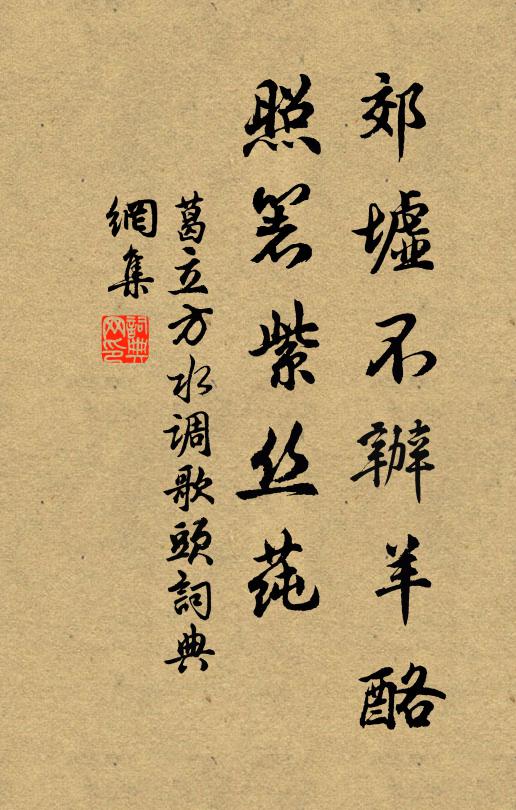 郊墟不辦羊酪
照箸紫丝莼
葛立方水调歌頭詞典
網集
詞典
网印